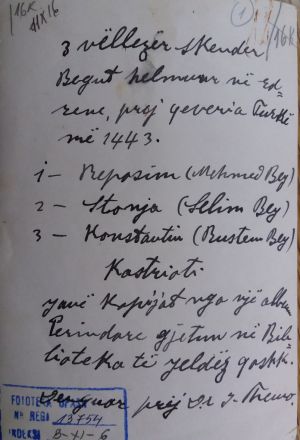 16K
HX16
1
16K
3 vëllezër Skender
Begut helmuar në Ed=
rene, prej qeveria Turke
më 1443.
1 – Reposim (Mehmed Bey)
2 – Stonja (Selim Bey)
3 – Konstantin (Rustem Bey)
Kastrioti
janë kopijat nga një album
Perindore gjetun në Bib=
lioteka të Jeldëz qoshk.
prej Dr.
FOTOTEKA
NR REGJ 13754
INDEKSI B-XI-6